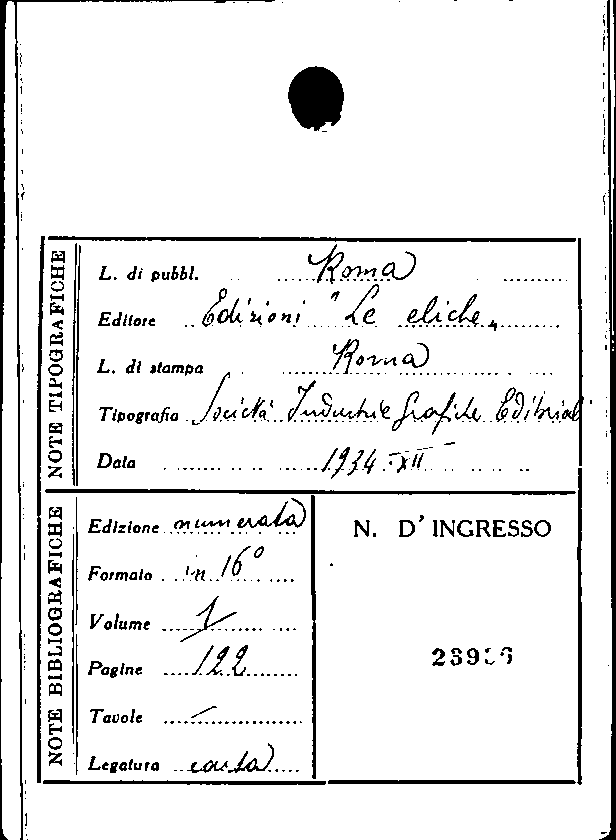 NOTE TIPOGRAFICHE
L. di pubbl. Roma
Editore Edizioni "Le eliche„
L. di stampa Roma
Tipografia Società Industrie Grafiche Editoriali
Data 1934-XII
NOTE BIBLIOGRAFICHE
Edizione numerata
Formato in 16°
Volume 1
Pagine 122
Tavole —
Legatura carta
N. D'INGRESSO